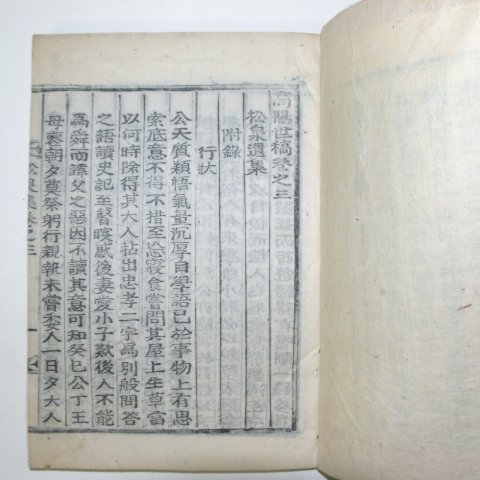 向陽世稿卷之三
松泉遺集
附錄
行狀
公天質穎悟氣量沉厚自學語已於事物上有思
索底意不得不措至忘寢食嘗問其屋上生草當
以何時除得其大人拈出忠孝二字爲別般問答
之語讀史記至瞽瞍惑後妻愛小子歎後人不能
爲舜而諱父之惡因不讀其意可知癸巳公丁王
母喪朝夕奠祭躬行親執未嘗委人一日夕大人
松泉集卷之三